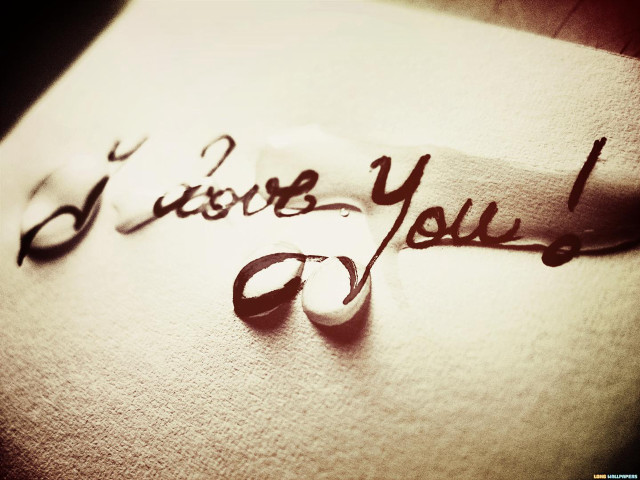 I Love You!
LOND WALLPAPERS